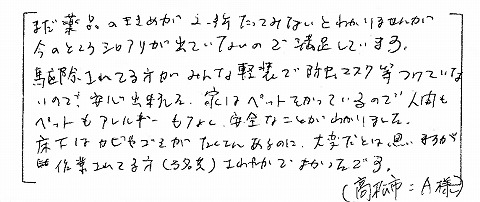 まだ薬品のききめが2、3年たってみないとわかりませんが
今のところシロアリが出ていないので満足しています。
駆除されてる方がみんな軽装で防虫マスク等つけていな
いので、安心出来ました。家はペットをかっているので人間も
ペットもアレルギーもなく、安全なことがわかりました。
床下はカビやゴミがたくさんあるのに、大変だとは思いますが
作業されてる方(3名共)さわやかでよかったです。
(高松市:A様)